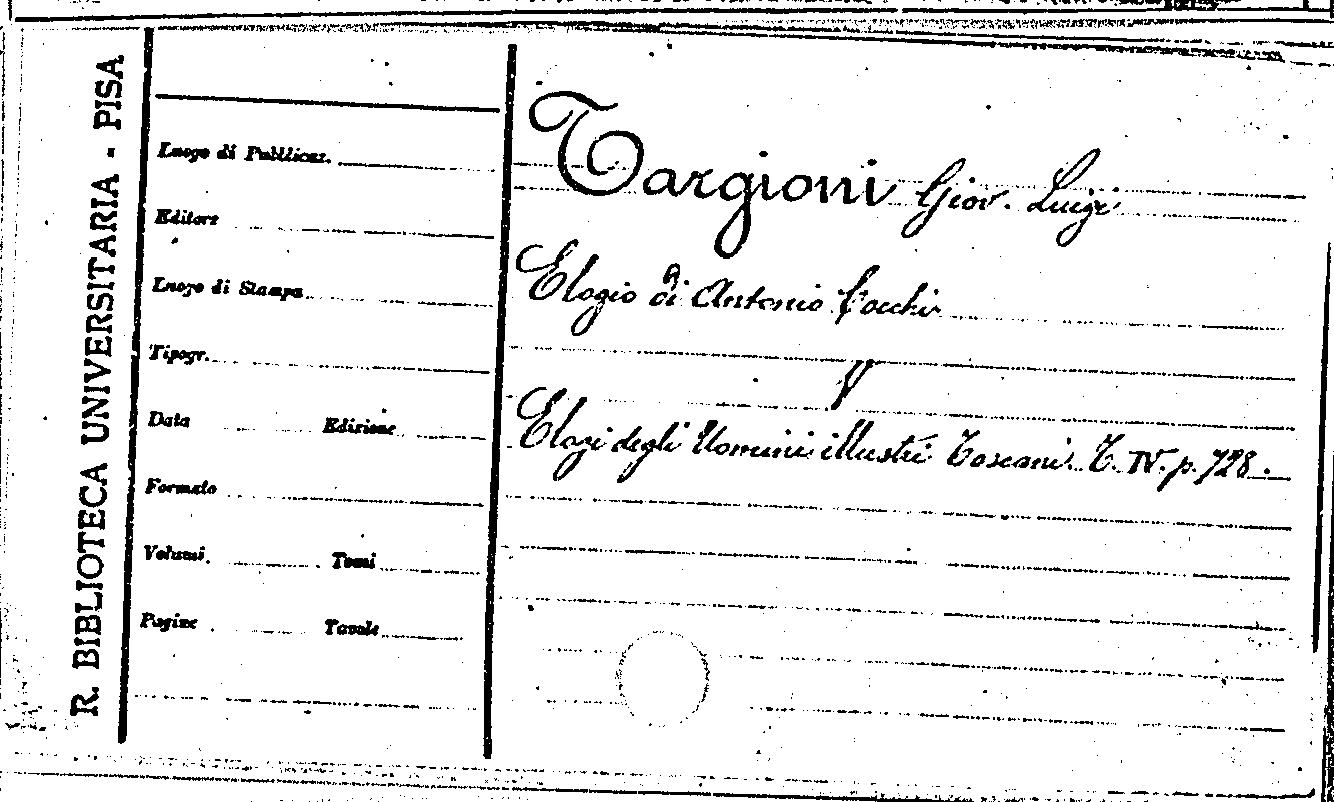 R. BIBLIOTECA UNIVERSITARIA - PISA
Luogo di Pubblicaz.
Editore
Luogo di Stampa
Tipogr.
Data Edizione
Formato
Volumi. Tomi
Pagine Tavole
Targioni Giov. Luigi
Elogio di Antonio Cocchi
V
Elogi degli Uomini illustri Toscani. T. IV. p. 728.